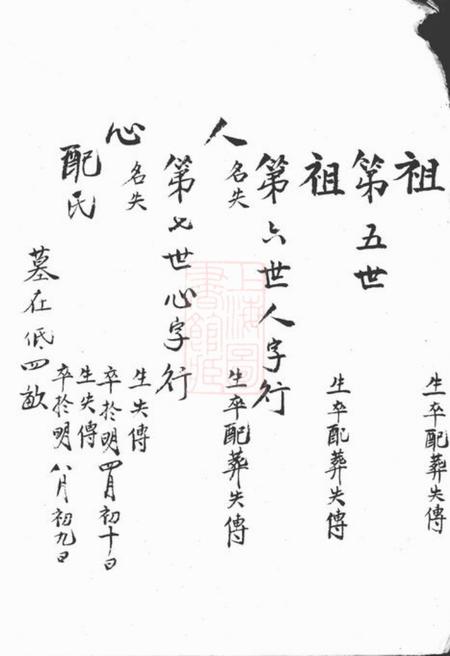 祖
生卒配葬失傳
第五世
祖
生卒配葬失傳
第六世人字行
人名失
生卒配葬失傳
第七世心字行
心名失
生失傳
卒於明四月初十日
配氏
生失傳
卒於明八月初九日
墓在低四畝
上海圖書館藏